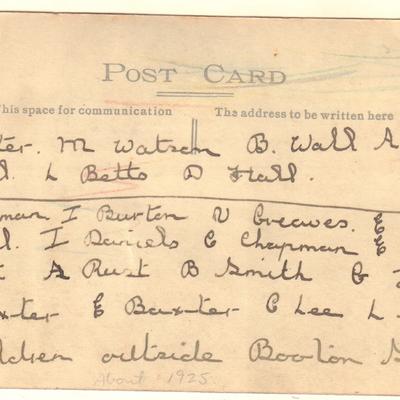 POST CARD
This space for communication The address to be written here
ter. M Watson B. Wall A
l. L Betts D Hall.
man I Burton V Greaves. E
l. I Daniels C Chapman E
A Rust B Smith G
xter E Baxter C Lee L
ldren outside Booton
About 1925